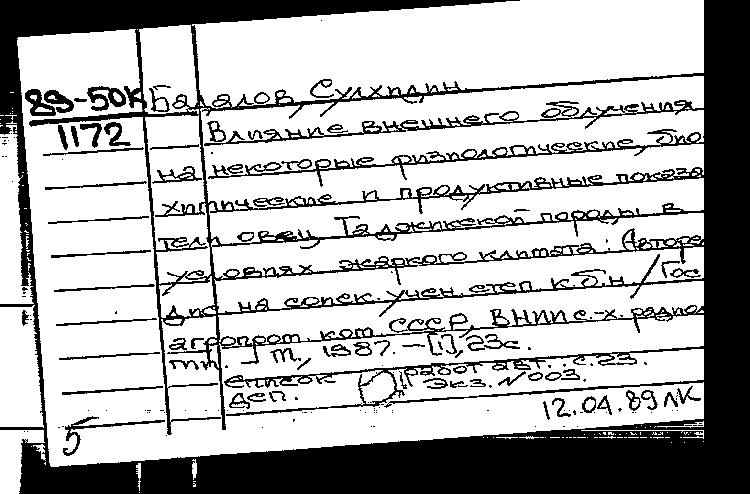 89-50К
1172
Бадалов, Сулхидин.
Влияние внешнего облучения
на некоторые физиологические, био
химические и продуктивные показа
тели овец Таджикской породы в
условиях жаркого климата: Авторе
дис. на соиск. учен. степ. к.б.н. / Гос
агропром. ком. СССР, ВНИИ с.-х. радиол
М., 1987. – [1], 23 с.
список работ авт.: с. 23.
ДСП. Экз. №003.
12.04.89 ЛК
5